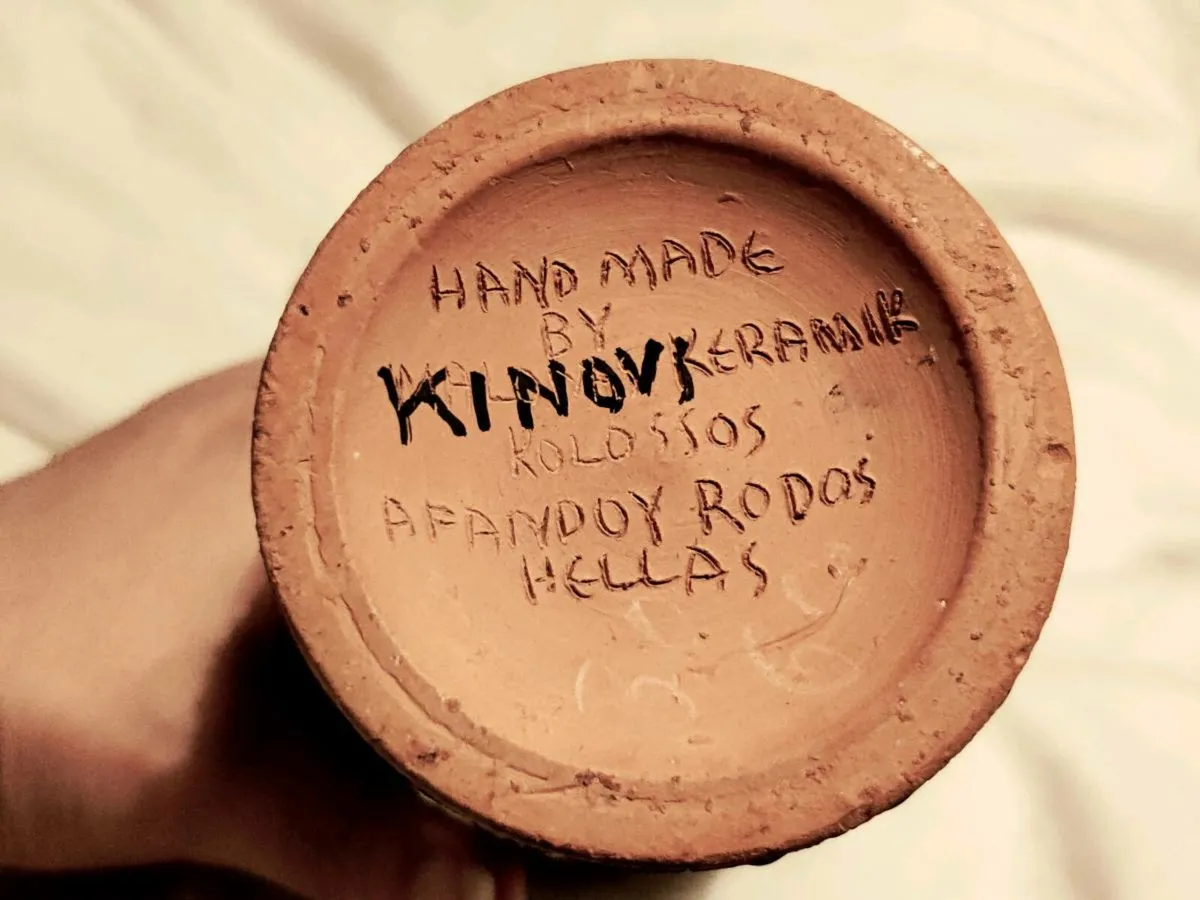 HAND MADE
BY
KINOVI KERAMIK
KOLOSSOS
AFANDOY RODOS
HELLAS